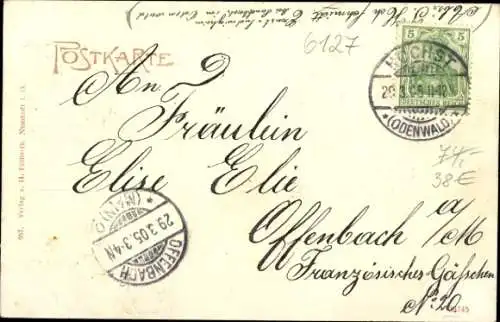 POSTKARTE
6127
An
Fräulein
Elise Elie
Offenbach a/M
Französisches Gäßchen
No. 20
5
DEUTSCHES REICH
HÖCHST
29.3.05.11-12
*(ODENWALD)*
74,-
38€
*(MAIN)*
29.3.05.3-4N
OFFENBACH
Verlag v. H.